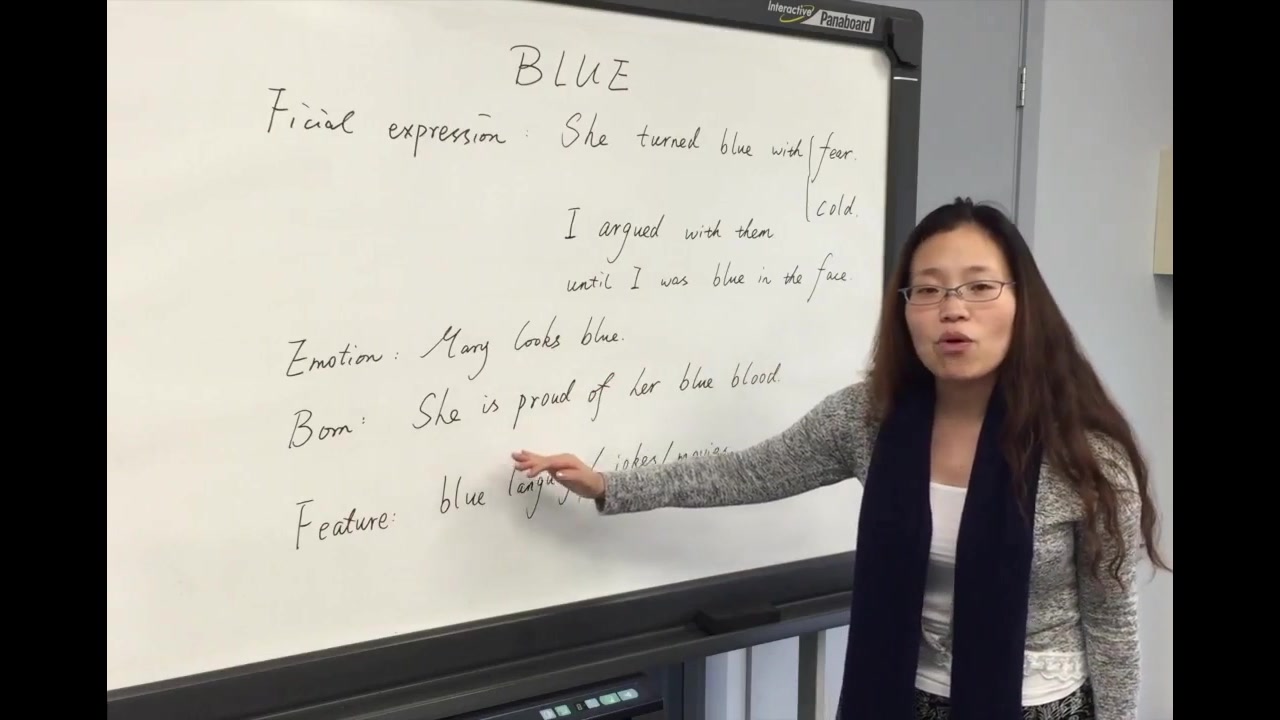 Interactive Panaboard
BLUE
Ficial expression: She turned blue with fear.
cold.
I argued with them
until I was blue in the face.
Emotion: Mary looks blue.
Born: She is proud of her blue blood.
Feature: blue jokes/movies